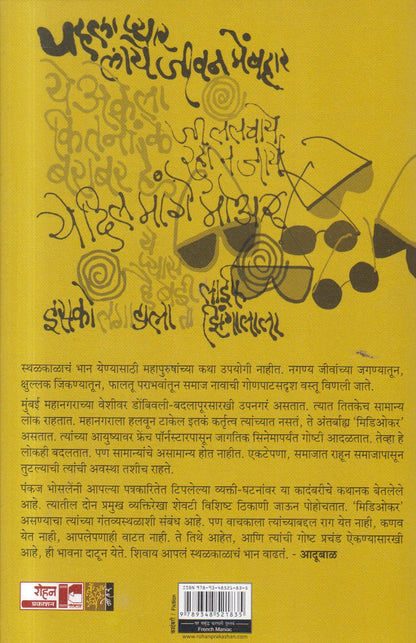 पहला प्यार
लाये जीवन में बहार
ये अकेला
कितनों के
बराबर है
जी ललचाये
रहा न जाये
ये दिल मांगे मोअर
ये
प्यास
है बडी
लाईफ
इसको लगा डाला तो
झिंगालाला
स्थळकाळाचं भान येण्यासाठी महापुरुषांच्या कथा उपयोगी नाहीत. नगण्य जीवांच्या जगण्यातून,
क्षुल्लक जिंकण्यातून, फालतू पराभवांतून समाज नावाची गोणपाटसदृश वस्तू विणली जाते.
मुंबई महानगराच्या वेशीवर डोंबिवली-बदलापूरसारखी उपनगरं असतात. त्यात तितकेच सामान्य
लोक राहतात. महानगराला हलवून टाकेल इतकं कर्तृत्व त्यांच्यात नसतं, ते अंतर्बाह्य ‘मिडिओकर’
असतात. त्यांच्या आयुष्यावर फ्रेंच पॉर्नस्टारपासून जागतिक सिनेमापर्यंत गोष्टी आदळतात. तेव्हा हे
लोकही बदलतात. पण सामान्यांचे असामान्य होत नाहीत. एकटेपणा, समाजात राहून समाजापासून
तुटल्याची त्यांची अवस्था तशीच राहते.
पंकज भोसलेंनी आपल्या पत्रकारितेत टिपलेल्या व्यक्ती-घटनांवर या कादंबरीचे कथानक बेतलेले
आहे. त्यातील दोन प्रमुख व्यक्तिरेखा शेवटी विशिष्ट ठिकाणी जाऊन पोहोचतात. ‘मिडिओकर’
असण्याचा त्यांच्या गंतव्यस्थळाशी संबंध आहे. पण वाचकाला त्यांच्याबद्दल राग येत नाही, कणव
येत नाही, आपलेपणाही वाटत नाही. ते तिथे आहेत, आणि त्यांची गोष्ट प्रचंड ऐकण्यासारखी
आहे, ही भावना दाटून येते. शिवाय आपलं स्थळकाळाचं भान वाढतं. - आदूबाळ
रोहन
प्रकाशन
कादंबरी / Fiction
ISBN : 978-93-48521-83-5
9 789348 521835
French Maniac
www.rohanprakashan.com